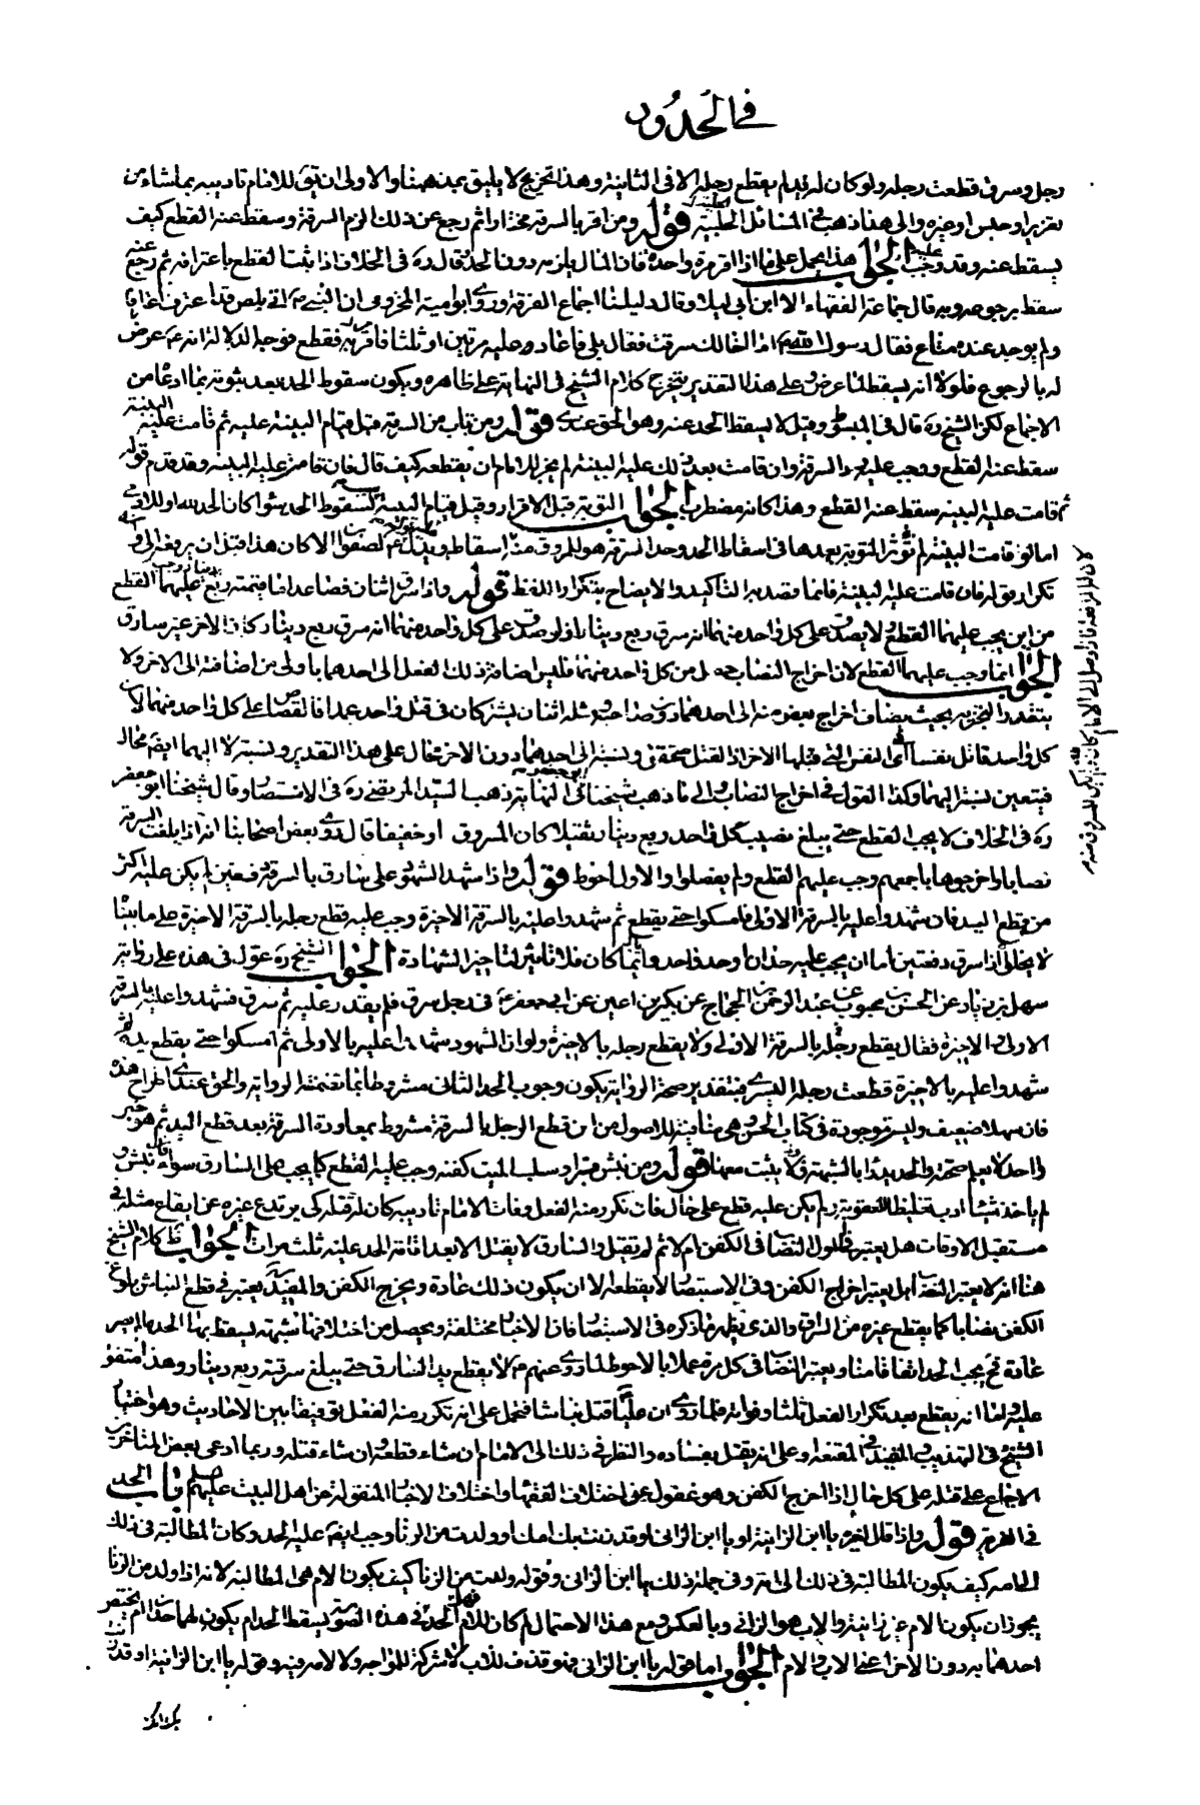 في الحدود
رجل وسرق قطعت رجله ولو كان له يد لم يقطع رجله الا في الثانية وهذا تخريج لا يليق بمذهبنا والاولى ان تبقى للامام تاديبه بما شاء من
تعزير او حبس او غيره والى هذا ذهب في المسائل الحلبية قوله ومن اقر بالسرقة مختارا ثم رجع عن ذلك الزم السرقة وسقط عنه القطع كيف
يسقط عنه وقد وجب عليه الجواب هذا يحمل على ما اذا اقر مرة واحدة فان المال يلزمه دون الحد قال ره في الخلاف اذا ثبت القطع باعترافه ثم رجع عنه
سقط برجوعه وبه قال جماعة الفقهاء الا ابن ابي ليلى وقال دليلنا اجماع الفرقة وروى ابو امية المخزومي ان النبي ص اتى بلص قد اعترف اعترافا
ولم يوجد عنده متاع فقال رسول الله ص ما اخالك سرقت فقال بلى فاعاد عليه مرتين او ثلثا فامر به فقطع فوجه الدلالة انه ع عرض
له بالرجوع فلولا انه يسقط لما عرض وعلى هذا التقدير يتخرج كلام الشيخ في النهاية على ظاهره ويكون سقوط الحد بعد ثبوته بما ادعاه من
الاجماع لكن الشيخ ره قال في المبسوط وقيل لا يسقط الحد عنه وهو الحق عندي قوله ومن تاب من السرقة قبل قيام البينة عليه ثم قامت عليه البينة
سقط عنه القطع ووجب عليه رد السرقة وان قامت بعد ذلك عليه البينة لم يجز للامام ان يقطعه كيف قال فان قامت عليه البينة وقد قدم قوله
ثم قامت عليه البينة سقط عنه القطع وهذا كانه مضطرب الجواب التوبة قبل الاقرار وقبل قيام البينة لسقوط الحد سواء كان الحد لله او للادمي
اما لو قامت البينة لم تؤثر التوبة بعدها في اسقاط الحد وحد السرقة هو للمسروق منه
تكرار قوله فان قامت عليه البينة فانما قصد به التاكيد والايضاح بتكرار اللفظ قوله واذا سرق اثنان فصاعدا ما قيمته ربع دينار وجب عليهما القطع
من اين يجب عليهما القطع ولا يصدق على كل واحد منهما انه سرق ربع دينار اذ لو صدق على كل واحد منهما انه سرق ربع دينار كان الاخر غير سارق
الجواب انما وجب عليهما القطع لان اخراج النصاب حصل من كل واحد منهما فليس اضافة ذلك الفعل الى احدهما باولى من اضافته الى الاخر ولا
يتقدر التجزية بحيث يضاف اخراج بعض منه الى احدهما دون صاحبه ومثله اثنان يشتركان في قتل واحد عمدا فالقصاص على كل واحد منهما لا لان
كل واحد قاتل نفسا
فيتعين نسبته اليهما وكذا القول في اخراج النصاب والى ما ذهب شيخنا في النهاية ذهب السيد المرتضى ره في الانتصار وقال شيخنا ابو جعفر
ره في الخلاف لا يجب القطع حتى يبلغ نصيب كل واحد ربع دينار ثقيلا كان المسروق او خفيفا قال وروى بعض اصحابنا انه اذا بلغت السرقة
نصابا واخرجوها باجمعهم وجب عليهم القطع ولم يفصلوا والاول احوط قوله واذا شهد الشهود على سارق بالسرقة دفعتين لم يكن عليه اكثر
من قطع اليد فان شهدوا عليه بالسرقة الاولى فامسكوا حتى يقطع ثم شهدوا عليه بالسرقة الاخيرة وجب عليه قطع رجله بالسرقة الاخيرة على ما بينا
لا يخلو اذا سرق دفعتين اما ان يجب عليه حدان او حد واحد وايما كان فلا تاثير لتاخير الشهادة الجواب الشيخ ره عول في هذه على رواية
سهل بن زياد عن الحسن بن محبوب عن عبد الرحمن بن الحجاج عن بكير بن اعين عن ابي جعفر ع في رجل سرق فلم يقدر عليه ثم سرق فشهدوا عليه بالسرقة
الاولى والاخيرة فقال يقطع رجله بالسرقة الاولى ولا يقطع رجله بالاخيرة ولو ان الشهود شهدوا عليه بالاولى ثم امسكوا حتى يقطع يده ثم
شهدوا عليه بالاخيرة قطعت رجله اليسرى فبتقدير صحة الرواية يكون وجوب الحد الثاني مشروطا بما تضمنته الرواية والحق عندي اطراح هذه
فان سهلا ضعيف وليست موجودة في كتاب الحسن وهي منافية للاصول من ان قطع الرجل بالسرقة مشروط بمعاودة السرقة بعد قطع اليد ثم هو خبر
واحد لا يعلم صحته والحد يدرا بالشبهة فلا يثبت معها قوله ومن نبش قبرا وسلب الميت كفنه وجب عليه القطع كما يجب على السارق سواء فان نبش و
لم ياخذ شيئا ادب تغليظا لعقوبة ولم يكن عليه قطع على حال فان تكرر منه الفعل وفات الامام تاديبه كان له قتله كي يرتدع غيره عن ايقاع مثله في
مستقبل الاوقات هل يعتبر بلوغ النصاب في الكفن ام لا ثم لم يقتل والسارق لا يقتل الا بعد اقامة الحد عليه ثلث مرات الجواب ظ كلام الشيخ
هنا انه لا يعتبر النصاب بل يعتبر اخراج الكفن وفي الاستبصار لا يقطع الا ان يكون ذلك عادة ويخرج الكفن والمفيد ره يعتبر في قطع النباش بلوغ
الكفن نصابا كما يقطع غيره من السراق والذي يظهر ما ذكره في الاستبصار فان الاخبار مختلفة ويحصل من اختلافها شبهة يسقط بها الحد ما لم يصر
عادة فح يجب الحد اتفاقا منا ويعتبر النصاب في كل مرة عملا بالاحوط لما روى عنهم ع لا يقطع يد السارق حتى يبلغ سرقته ربع دينار وهذا متفق
عليه واما انه يقطع بعد تكرار الفعل ثلثا وفواته فلما روى ان عليا قتل نباشا فحمل على انه تكرر منه الفعل توفيقا بين الاحاديث وهو اختيار
الشيخ في التهذيب والمفيد في المقنعة وعلى انه يقتل بفساده والنظر في ذلك الى الامام ان شاء قطعه وان شاء قتله وربما ادعى بعض المتاخرين
الاجماع على قتله على كل حال اذا اخرج الكفن وهو غفول عن اختلاف الفقهاء واختلاف الاخبار المنقولة عن اهل البيت عليهم باب الحد
في الفرية قوله واذا قال لغيره يا ابن الزانية او يا ابن الزاني او قد زنت بك امك او ولدت من الزنا وجب ايضا عليه الحد وكان المطالبة في ذلك
الى امه كيف يكون المطالبة في ذلك الى امه وفي جملة ذلك يا ابن الزاني وقوله ولدت من الزنا كيف يكون الام هي المطالبة لانه اذا ولد من الزنا
يجوز ان يكون الام غير زانية والاب هو الزاني وبالعكس ومع هذا الاحتمال لم كان للام الحد في هذه الصورة
احدهما به دون الاخر اعني الاب والام الجواب اما قوله يا ابن الزاني فهو قذف للاب لا شركة للمواجه ولا لامه فيه وقوله يا ابن الزانية او قد زنت